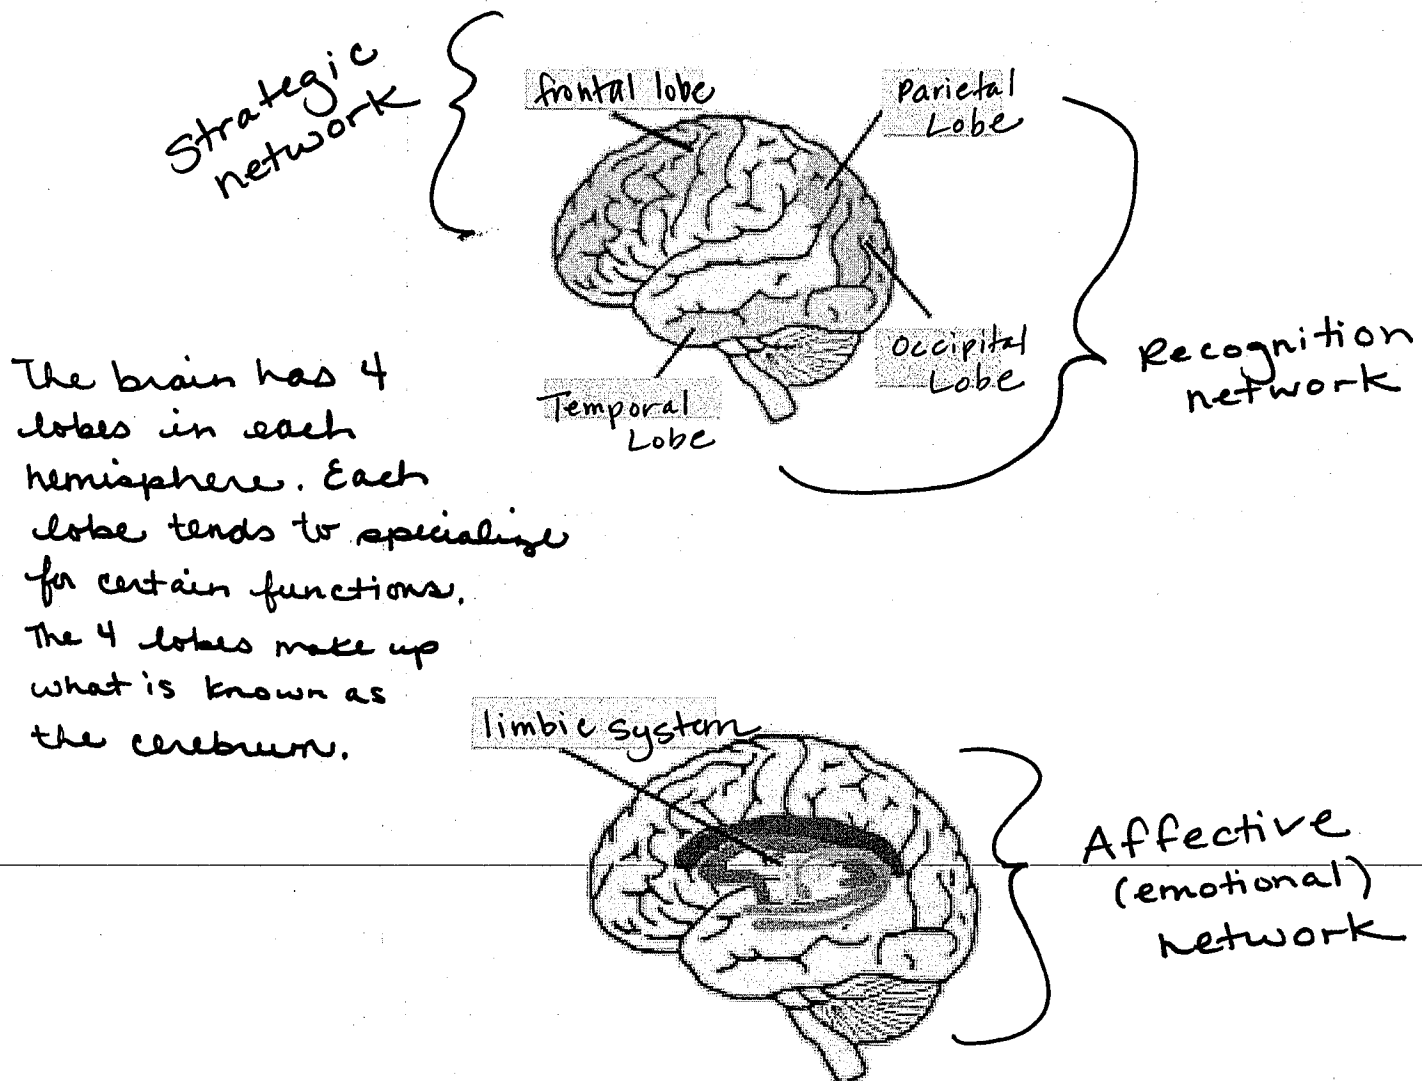 Strategic
network
frontal lobe
Parietal
Lobe
Occipital
Lobe
Temporal
Lobe
Recognition
network
The brain has 4
lobes in each
hemisphere. Each
lobe tends to specialize
for certain functions.
The 4 lobes make up
what is known as
the cerebrum.
limbic system
Affective
(emotional)
network